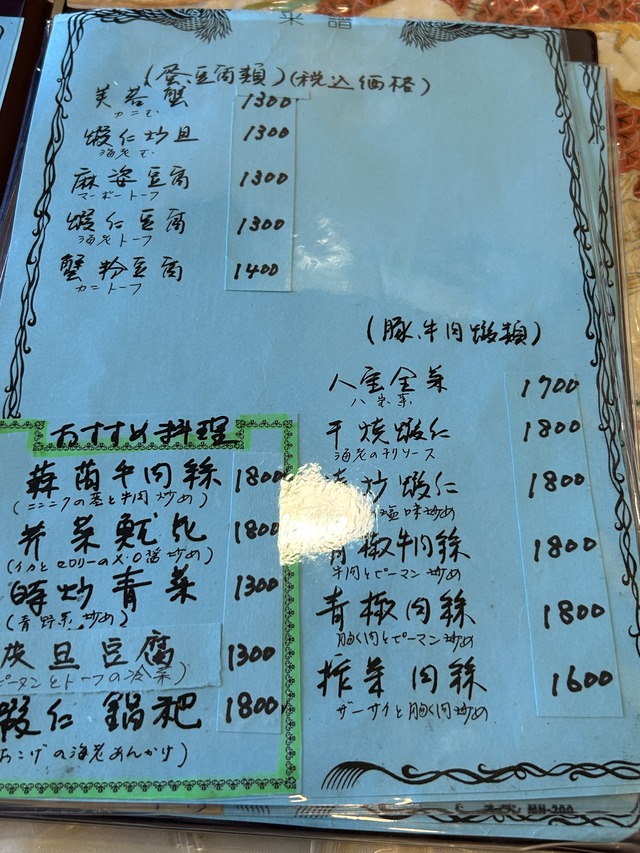 菜譜
(蛋豆腐類)(税込価格)
芙蓉蟹 1300
カニ玉
蝦仁炒旦 1300
海老玉
麻婆豆腐 1300
マーボートーフ
蝦仁豆腐 1300
海老トーフ
蟹粉豆腐 1400
カニトーフ
(豚、牛肉蝦類)
八宝全菜 1700
八宝菜
干焼蝦仁 1800
海老のチリソース
炒蝦仁 1800
塩味炒め
青椒牛肉絲 1800
牛肉とピーマン炒め
青椒肉絲 1800
豚肉とピーマン炒め
搾菜肉絲 1600
ザーサイと豚肉炒め
おすすめ料理
蒜苗牛肉絲 1800
(ニンニクの茎と牛肉炒め)
芥菜魷 1800
(イカとセロリーのX.O醤炒め)
時炒青菜 1300
(青野菜炒め)
皮旦豆腐 1300
ピータンとトーフの冷菜)
蝦仁鍋粑 1800
おこげの海老あんかけ)
MN-200